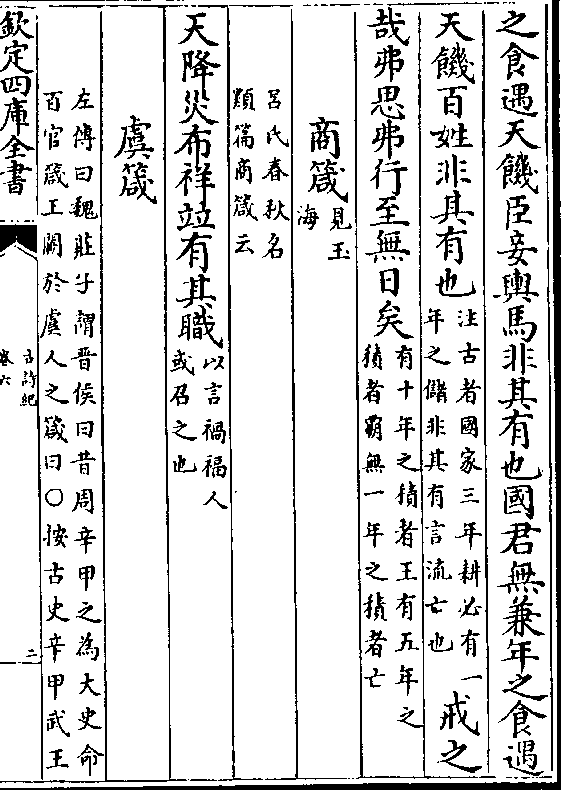 之食遇天饑臣妾輿馬非其有也國君無兼年之食遇
天饑百姓非其有也
注古者國家三年耕必有一
年之儲非其有言流亡也
戒之
哉弗思弗行至無日矣
有十年之積者王有五年之
積者霸無一年之積者亡
商箴
見玉
海
呂氏春秋名
類篇商箴云
天降災布祥竝有其職
以言禍福人
或召之也
虞箴
左傳曰魏莊子謂晉侯曰昔周辛甲之為大史命
百官箴王闕於虞人之箴曰○按古史辛甲武王
欽定四庫全書
古詩紀
卷六
二